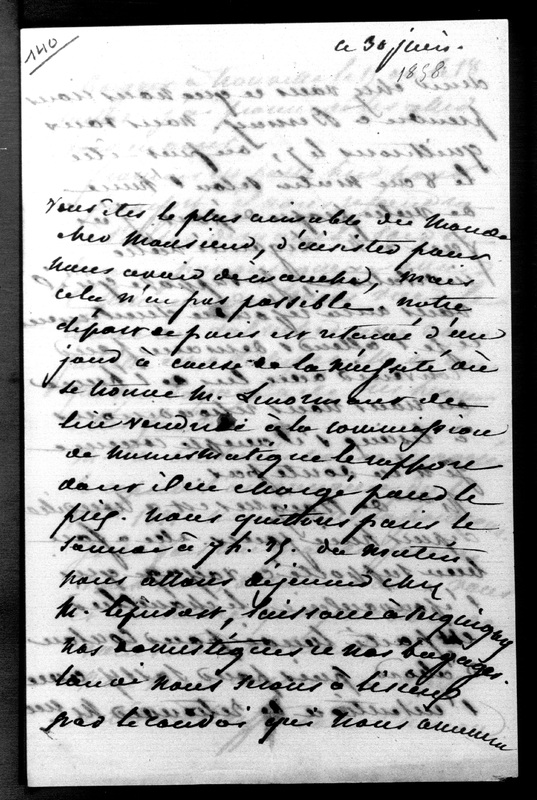 140
ce 30 juin.
1858
vous êtes le plus aimable du monde
cher Monsieur, d'insister pour
nous avoir dimanche, mais
cela n'est pas possible notre
départ de paris est retardé d'un
jour à cause de la nécessité où
se trouve M. Lenormant de
lire vendredi à la commission
de numismatique le rapport
dont il est chargé pour le
prix. nous quittons paris le
samedi à 7 h. 25. du matin
nous allons déjeuner chez
M. le prévost, laissons à Serquigny
nos domestiques et nos bagages.
nous irons à lisieux
par le convoi qui nous amènera